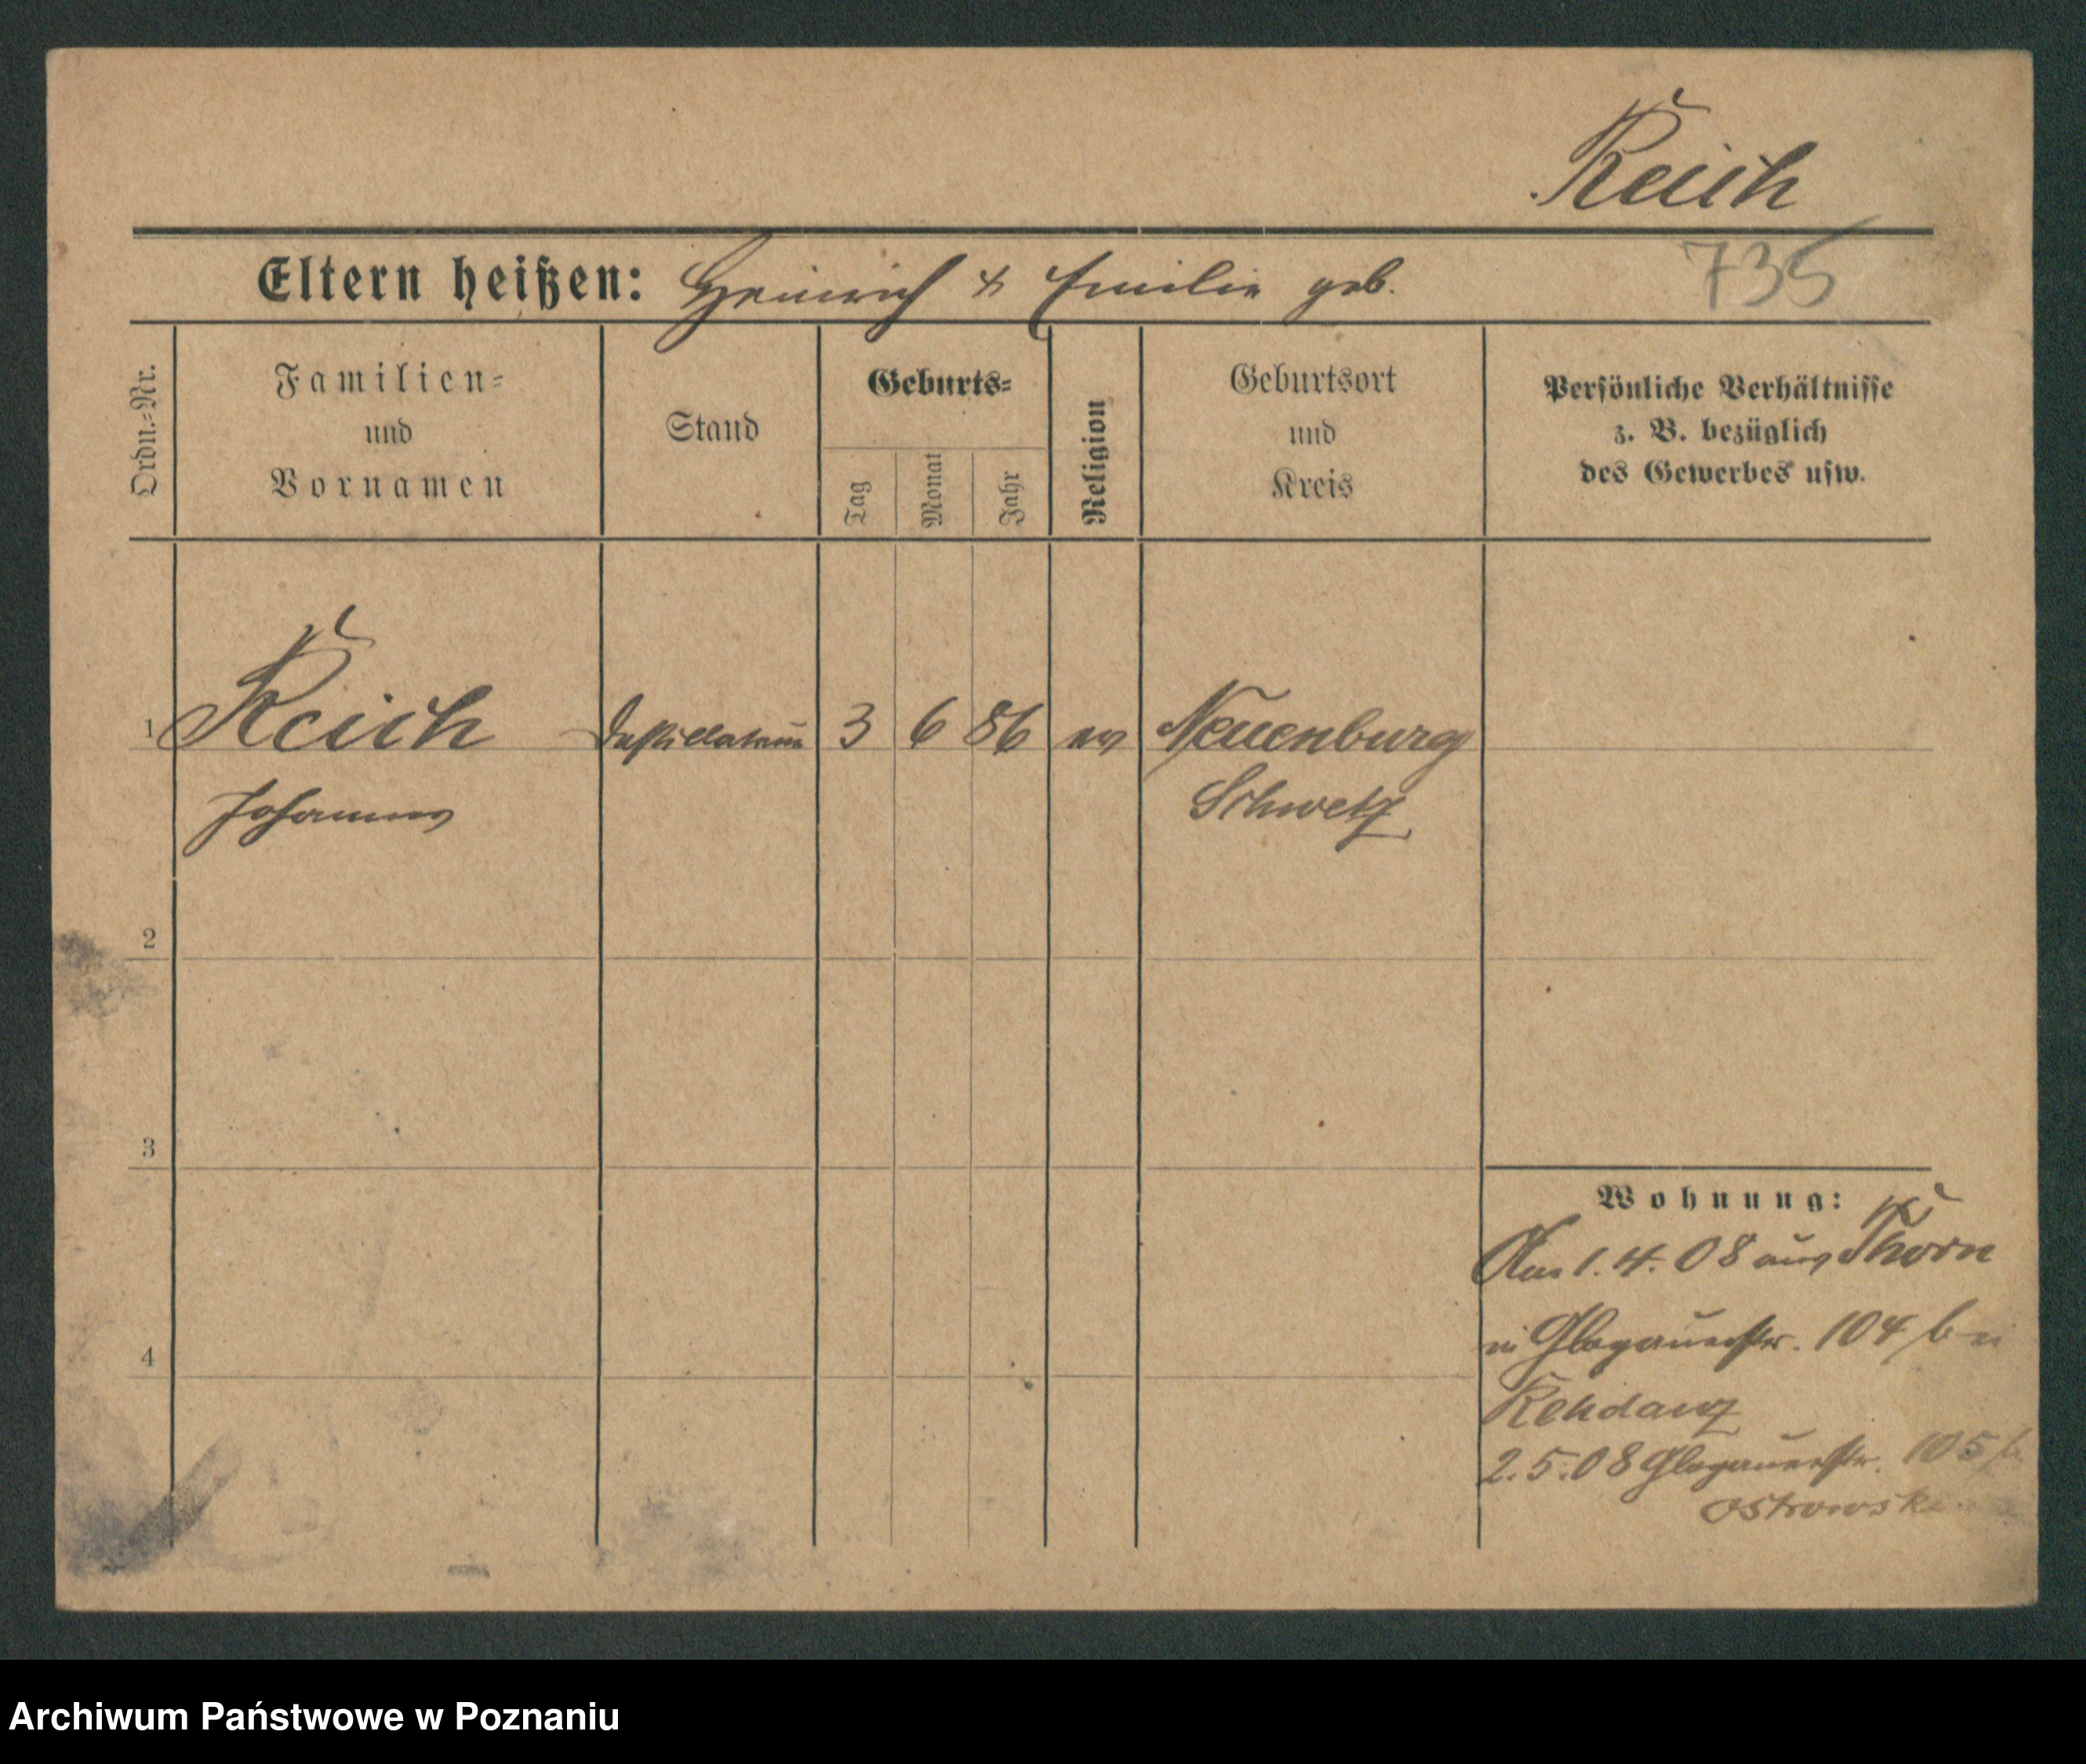 Reich
735
Eltern heißen: Heinrich & Emilie geb.
Ordn.-Nr.
Familien-
und
Vornamen
Stand
Geburts-
Tag
Monat
Jahr
Religion
Geburtsort
und
Kreis
Persönliche Verhältnisse
z. B. bezüglich
des Gewerbes usw.
1 Reich 3 6 86 ev Neuenburg
Johannes Schwetz
2
3
4
Wohnung:
Am 1. 4. 08 aus Thorn
in Glogauerstr. 104 bei
Rehdanz
2. 5. 08 Glogauerstr. 105 b.
Ostrowski
Archiwum Państwowe w Poznaniu